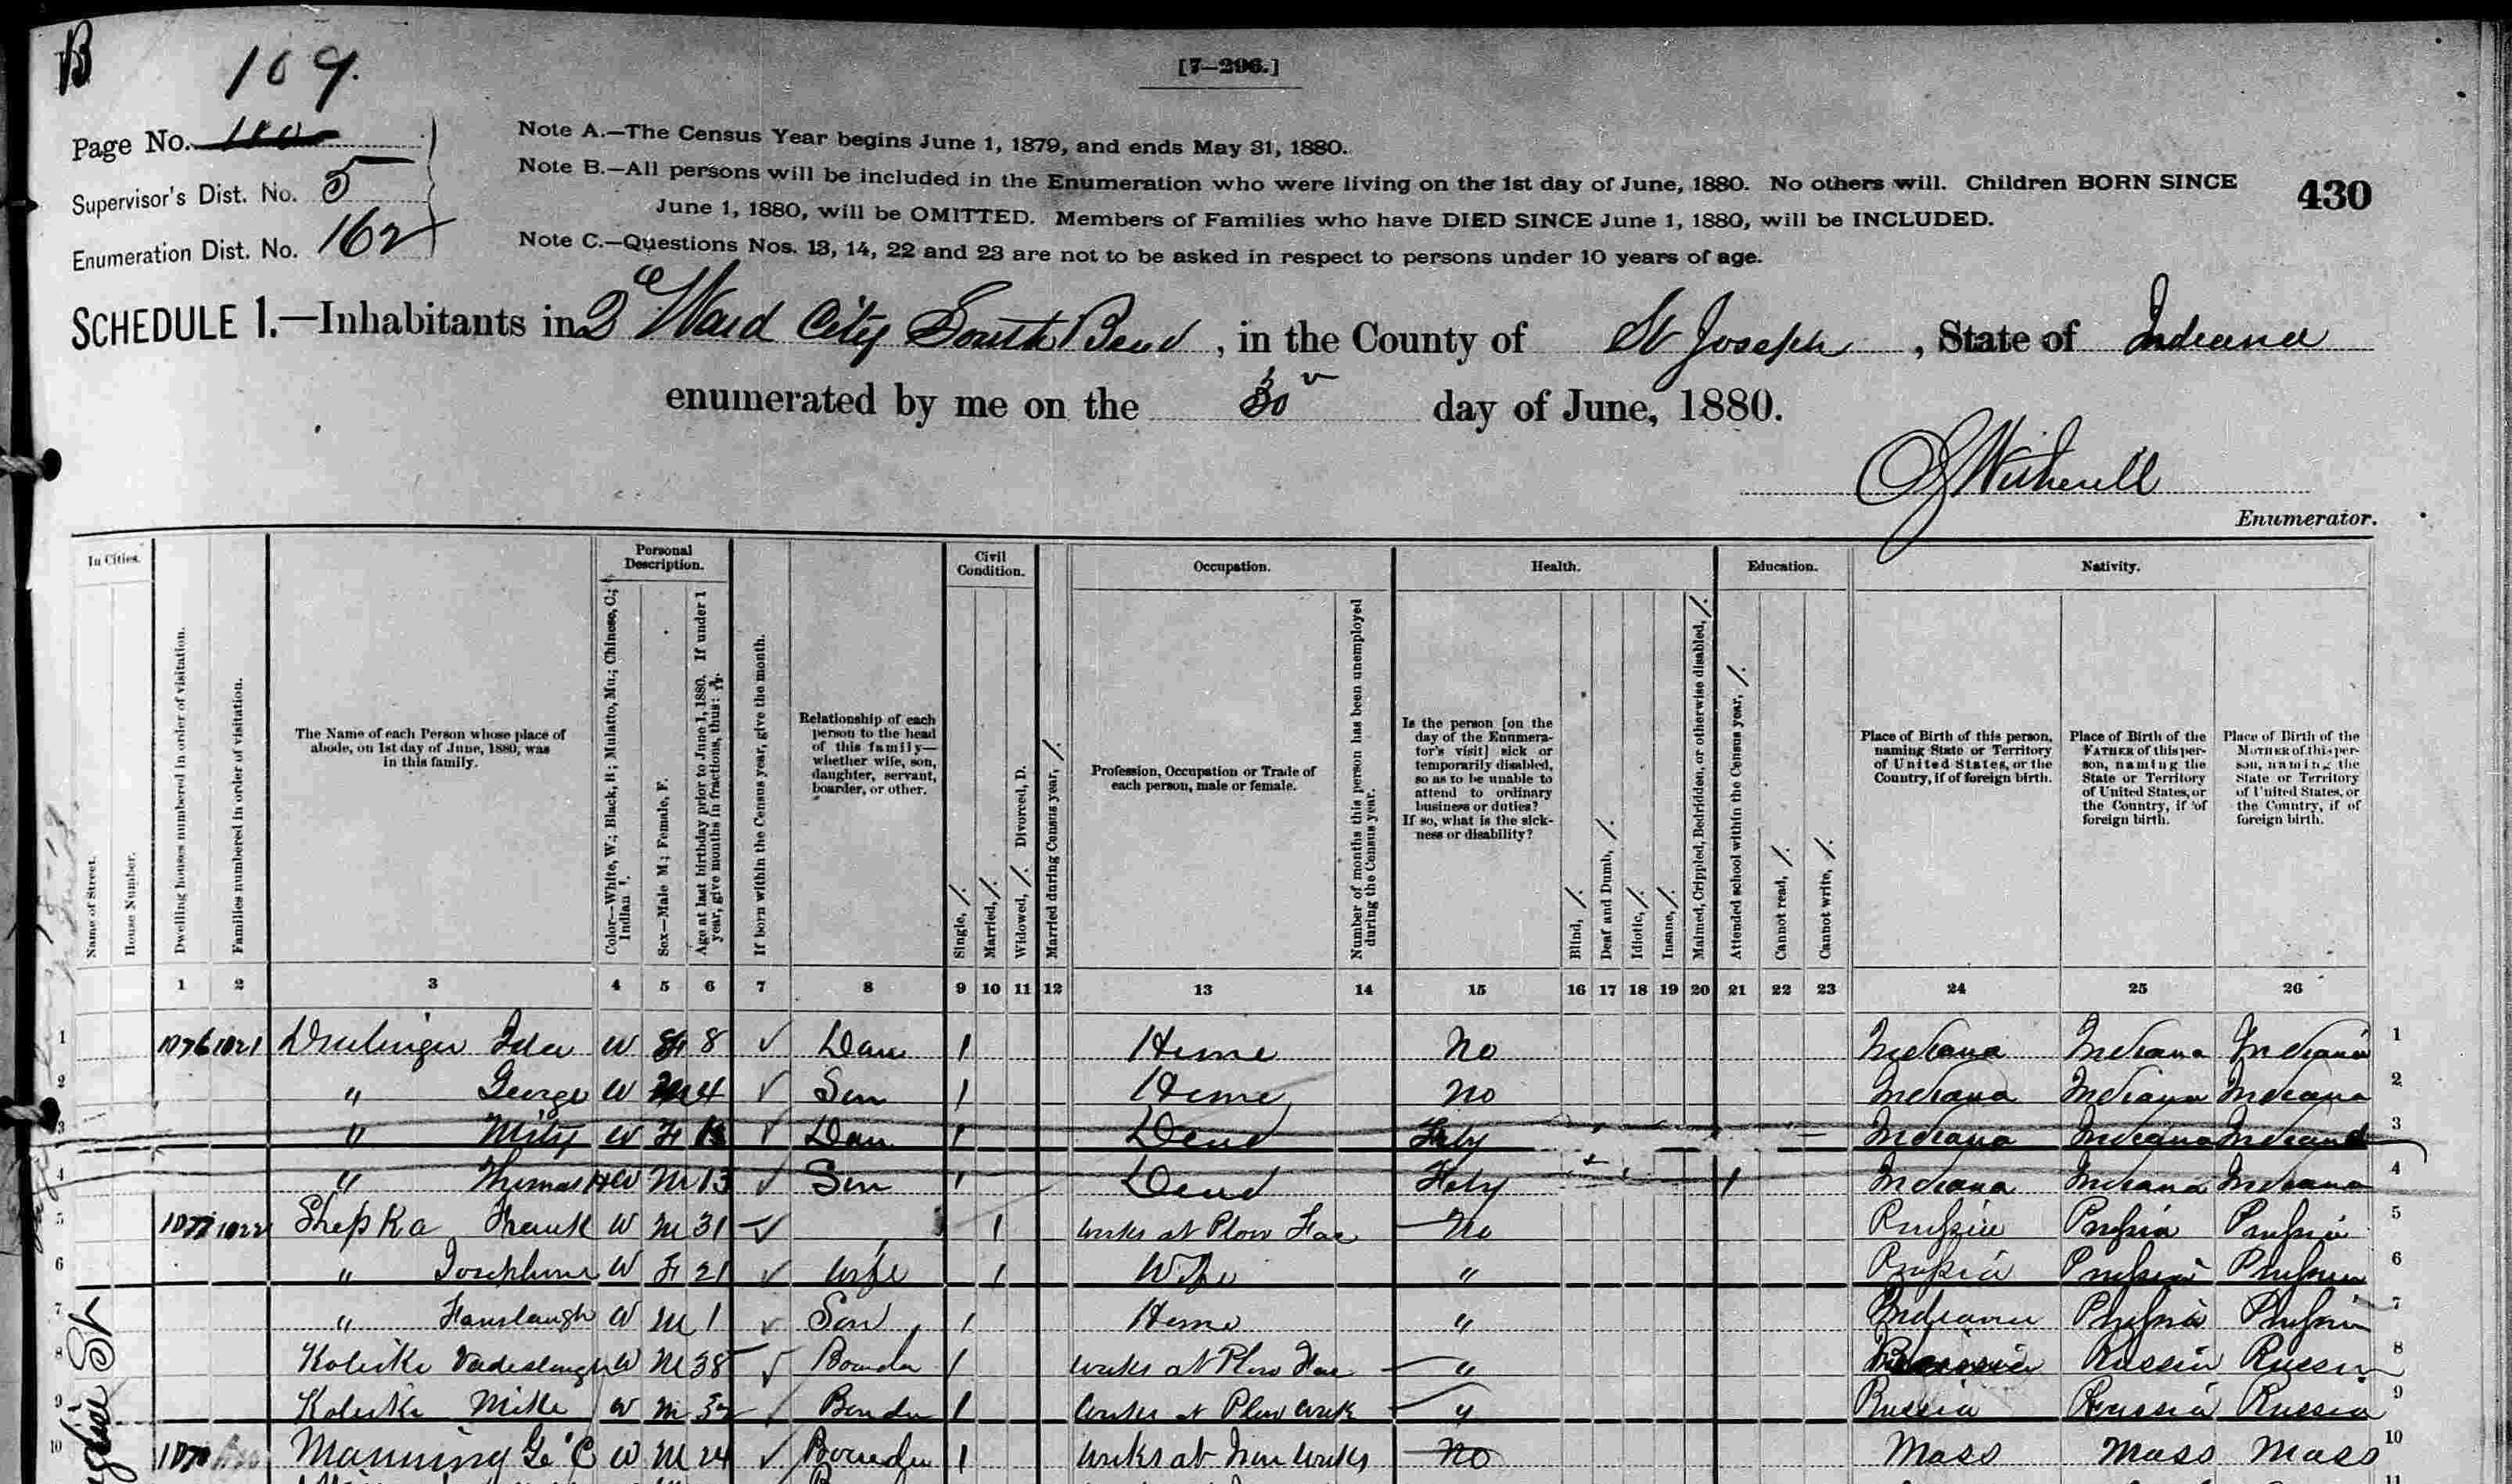 B
109.
[7-296.]
Page No. 110
Supervisor's Dist. No. 5
Enumeration Dist. No. 162
Note A.—The Census Year begins June 1, 1879, and ends May 31, 1880.
Note B.—All persons will be included in the Enumeration who were living on the 1st day of June, 1880. No others will. Children BORN SINCE
June 1, 1880, will be OMITTED. Members of Families who have DIED SINCE June 1, 1880, will be INCLUDED.
Note C.—Questions Nos. 13, 14, 22 and 23 are not to be asked in respect to persons under 10 years of age.
430
SCHEDULE 1.—Inhabitants in 2 Ward City South Bend, in the County of St Joseph, State of Indiana
enumerated by me on the 30 day of June, 1880.
Witherill
Enumerator.
In Cities.
Name of Street.
House Number.
Dwelling houses numbered in order of visitation.
Families numbered in order of visitation.
The Name of each Person whose place of
abode, on 1st day of June, 1880, was
in this family.
Personal
Description.
Color—White, W.; Black, B; Mulatto, Mu.; Chinese, C.;
Indian I.
Sex—Male M; Female, F.
Age at last birthday prior to June 1, 1880. If under 1
year, give months in fractions, thus:
If born within the Census year, give the month.
Relationship of each
person to the head
of this family—
whether wife, son,
daughter, servant,
boarder, or other.
Civil
Condition.
Single, /.
Married, /.
Widowed, /. Divorced, D.
Married during Census year, /.
Occupation.
Profession, Occupation or Trade of
each person, male or female.
Number of months this person has been unemployed
during the Census year.
Health.
Is the person [on the
day of the Enumera-
tor's visit] sick or
temporarily disabled,
so as to be unable to
attend to ordinary
business or duties?
If so, what is the sick-
ness or disability?
Blind, /.
Deaf and Dumb, /.
Idiotic, /.
Insane, /.
Maimed, Crippled, Bedridden, or otherwise disabled, /.
Education.
Attended school within the Census year, /.
Cannot read, /.
Cannot write, /.
Nativity.
Place of Birth of this person,
naming State or Territory
of United States, or the
Country, if of foreign birth.
Place of Birth of the
FATHER of this per-
son, naming the
State or Territory
of United States, or
the Country, if of
foreign birth.
Place of Birth of the
MOTHER of this per-
son, naming the
State or Territory
of United States, or
the Country, if of
foreign birth.
1 2 3 4 5 6 7 8 9 10 11 12 13 14 15 16 17 18 19 20 21 22 23 24 25 26
1 1076 1021 Ida W F 8 Dau 1 Home No Indiana Indiana Indiana 1
2 " George W M 4 Son 1 Home No Indiana Indiana Indiana 2
3 " W F Dau 1 Indiana Indiana Indiana 3
4 " Thomas H W M 13 Son 1 1 Indiana Indiana Indiana 4
5 1077 1022 Shepka Frank W M 31 1 works at Plow Fac No Prussia Prussia Prussia 5
6 " Josephine W F 21 Wife 1 Wife " Prussia Prussia Prussia 6
7 " W M 1 Son 1 Home " Indiana Prussia Prussia 7
8 W M 38 Boarder 1 works at Plow Fac " Russia Russia Russia 8
9 Mike W M 32 Boarder 1 works at Plow work " Russia Russia Russia 9
10 1078 Manning Geo C W M 24 Boarder 1 works at Iron works No Mass Mass Mass 10
11
St